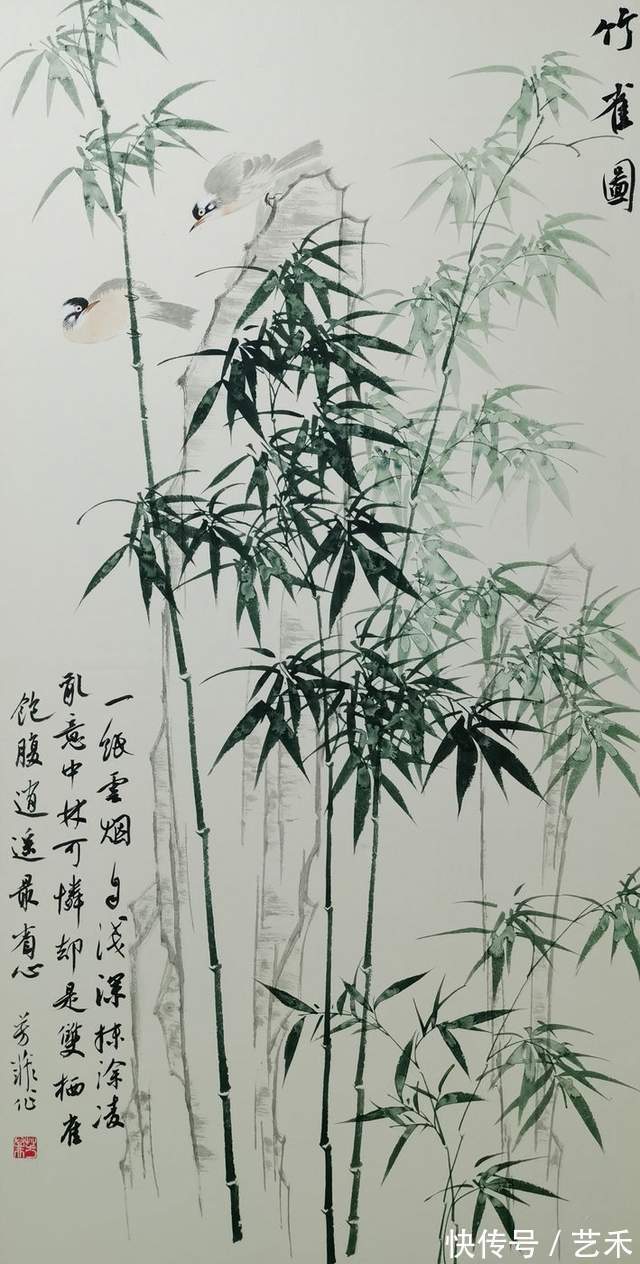 竹雀圖
一紙雲烟自浅深抹涂凌
乱意中林可憐却是雙栖雀
飽腹逍遥最省心 芳菲作
快传号 / 艺禾